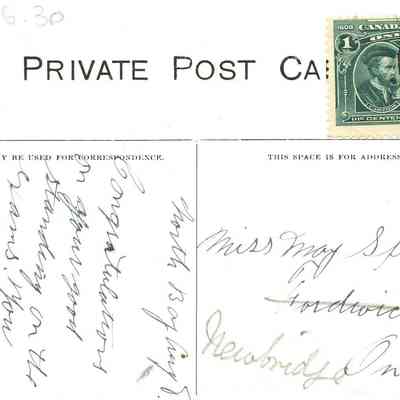 6.30
PRIVATE POST CA
CANAD
1608
1
ONE
DIS CENTEN
Y BE USED FOR CORRESPONDENCE.
THIS SPACE IS FOR ADDRES
North Bay
Congratulations
on your good
standing on the
Exams. You
Miss May S
Fordwic
Newbridge
On